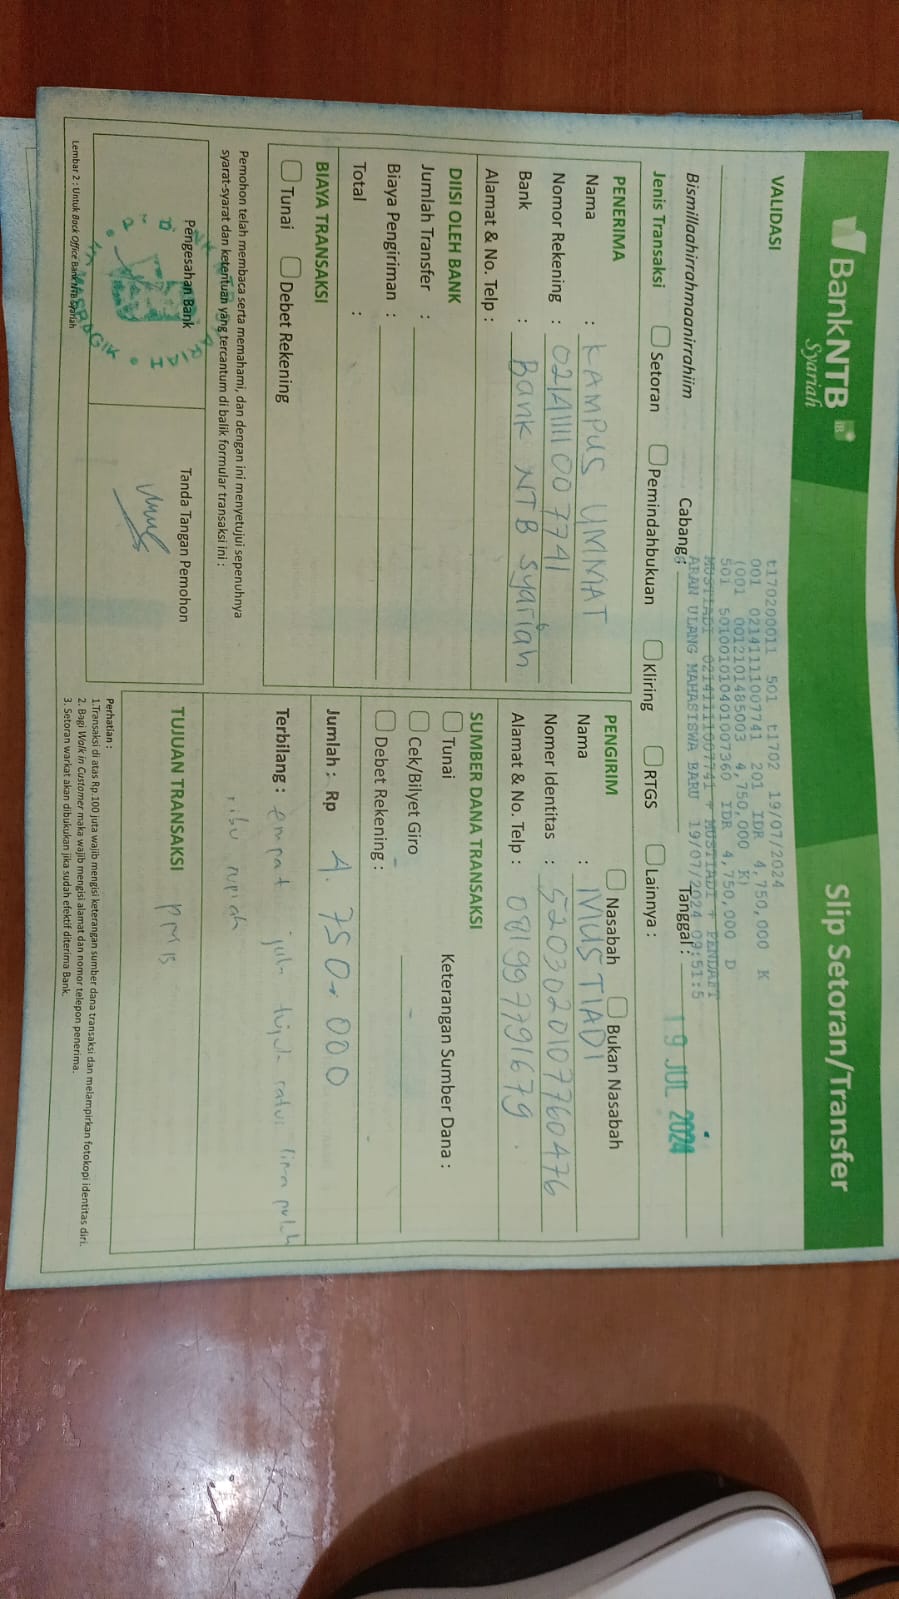 BankNTB
Syariah
Slip Setoran/Transfer
VALIDASI
t170200011 501 t1702 19/07/2024
001 0214111007741 201 IDR 4,750,000 K
(001 0012101485003 4,750,000 K)
501 501001010401007360 IDR 4,750,000 D
MUSTIADI 0214111007741 + MUSTIADI + PENDAFT
ARAN ULANG MAHASISWA BARU 19/07/2024 09:51:5
Bismillaahirrahmaanirrahiim
Cabang :
Tanggal :
19 JUL 2024
Jenis Transaksi
Setoran
Pemindahbukuan
Kliring
RTGS
Lainnya :
PENERIMA
Nama : KAMPUS UMMAT
Nomor Rekening : 0214111007741
Bank : Bank NTB Syariah
Alamat & No. Telp :
PENGIRIM
Nasabah
Bukan Nasabah
Nama : MUSTIADI
Nomer Identitas : 5203020107760476
Alamat & No. Telp : 081997791679.
DIISI OLEH BANK
Jumlah Transfer :
Biaya Pengiriman :
Total :
SUMBER DANA TRANSAKSI
Tunai
Keterangan Sumber Dana :
Cek/Bilyet Giro
Debet Rekening :
BIAYA TRANSAKSI
Tunai
Debet Rekening
Jumlah : Rp 4.750.000
Terbilang : empat juta tujuh ratus lima puluh
ribu rupiah
Pemohon telah membaca serta memahami, dan dengan ini menyetujui sepenuhnya
syarat-syarat dan ketentuan yang tercantum di balik formular transaksi ini :
Pengesahan Bank
Tanda Tangan Pemohon
TUJUAN TRANSAKSI
Perhatian :
1.Transaksi di atas Rp.100 juta wajib mengisi keterangan sumber dana transaksi dan melampirkan fotokopi identitas diri.
2. Bagi Walk in Customer maka wajib mengisi alamat dan nomor telepon penerima.
3. Setoran warkat akan dibukukan jika sudah efektif diterima Bank.
Lembar 2 : Untuk Back Office Bank NTB Syariah